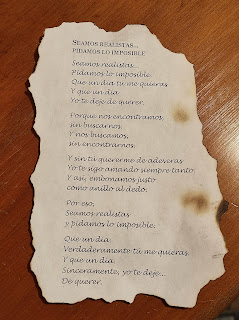 SEAMOS REALISTAS...
PIDAMOS LO IMPOSIBLE
Seamos realistas...
Pidamos lo imposible.
Que un día tu me quieras
Y que un día,
Yo te deje de querer.
Porque nos encontramos,
sin buscarnos.
Y nos buscamos,
sin encontrarnos.
Y sin tu quererme de adeveras
Yo te sigo amando siempre tanto.
Y así, embonamos justo
como anillo al dedo.
Por eso,
Seamos realistas
y pidamos lo imposible.
Que un día,
Verdaderamente tú me quieras.
Y que un día,
Sinceramente, yo te deje...
De querer.